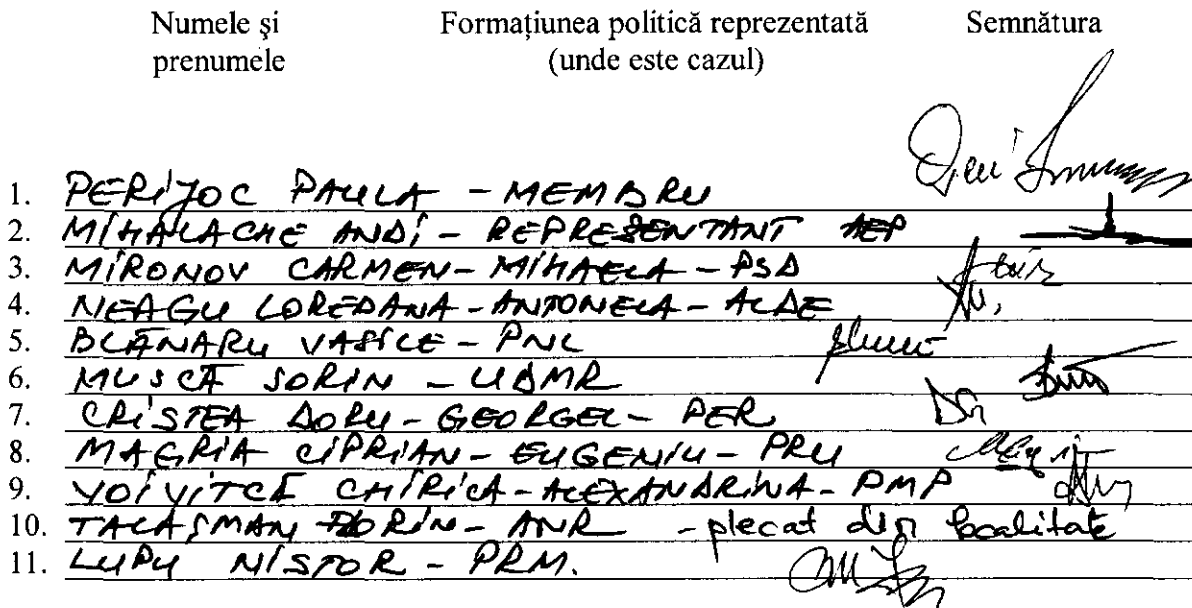 Numele şi Formaţiunea politică reprezentată Semnătura
prenumele (unde este cazul)
1. PERIJOC PAULA - MEMBRU
2. MIHALACHE ANDI - REPREZENTANT AEP
3. MIRONOV CARMEN-MIHAELA - PSD
4. NEAGU LOREDANA-ANTONELA - ALDE
5. BLĂNARU VASILE - PNL
6. MUSCĂ SORIN - UDMR
7. CRISTEA DORU-GEORGEL - PER
8. MAGRIA CIPRIAN-EUGENIU - PRU
9. VOIVITCĂ CHIRICA-ALEXANDRINA - PMP
10. TALAȘMAN FLORIN - ANR - plecat din localitate
11. LUPU NISTOR - PRM.